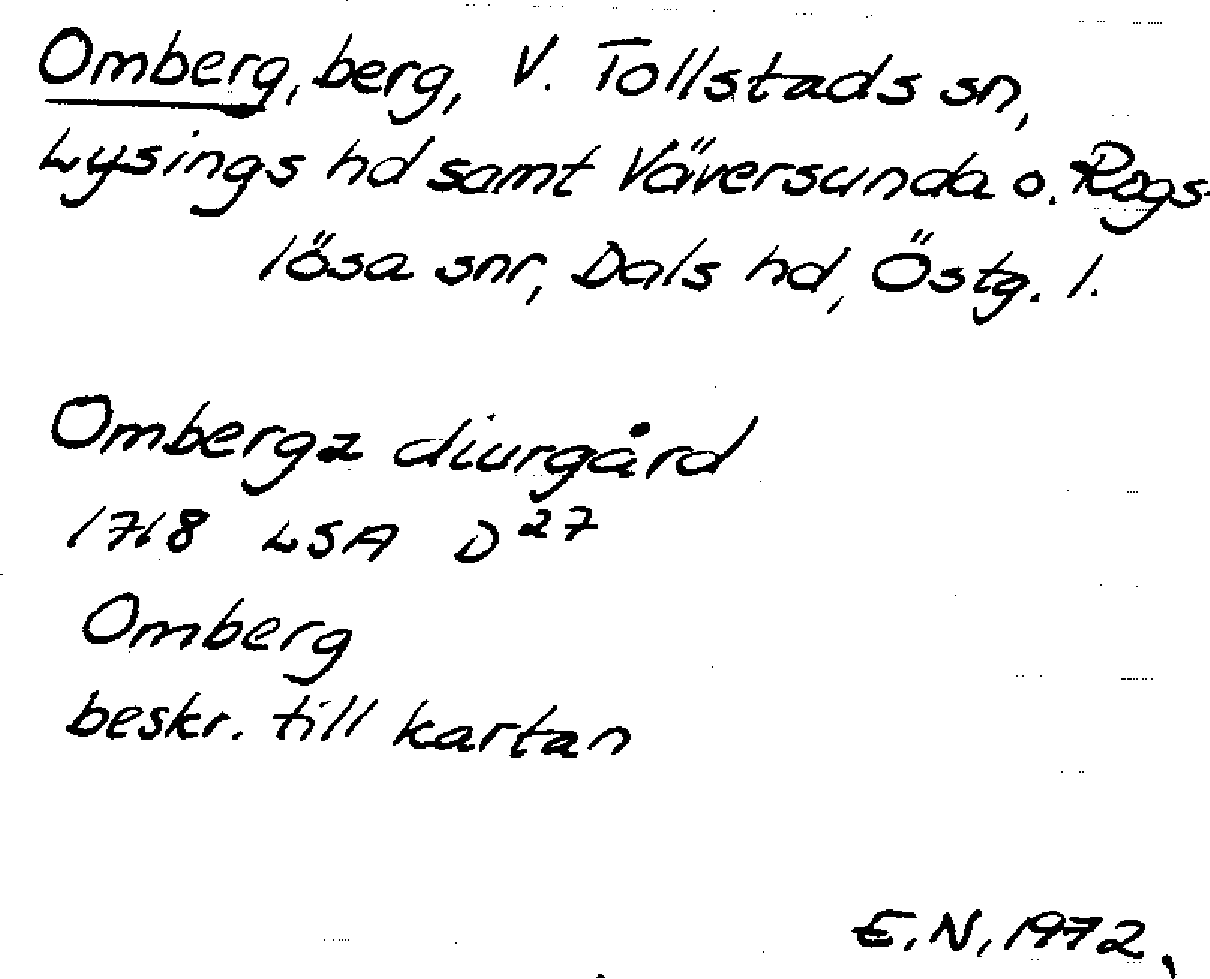 Omberg, berg, V. Tollstads sn,
Lysings hd samt Väversunda o. Rogs-
lösa snr, Dals hd, Östg. l.
Ombergz diurgård
1718 LSA D27
Omberg
beskr. till kartan
E.N, 1972.